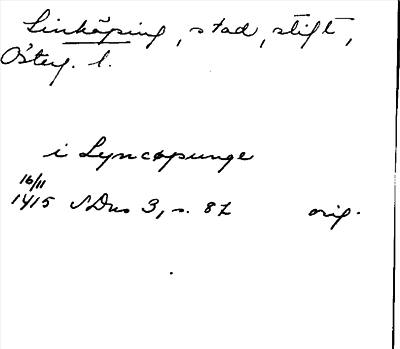 Linköping, stad, stift,
Österg. l.
i Lyncopunge
16/11
1415 SDns 3, s. 87 orig.